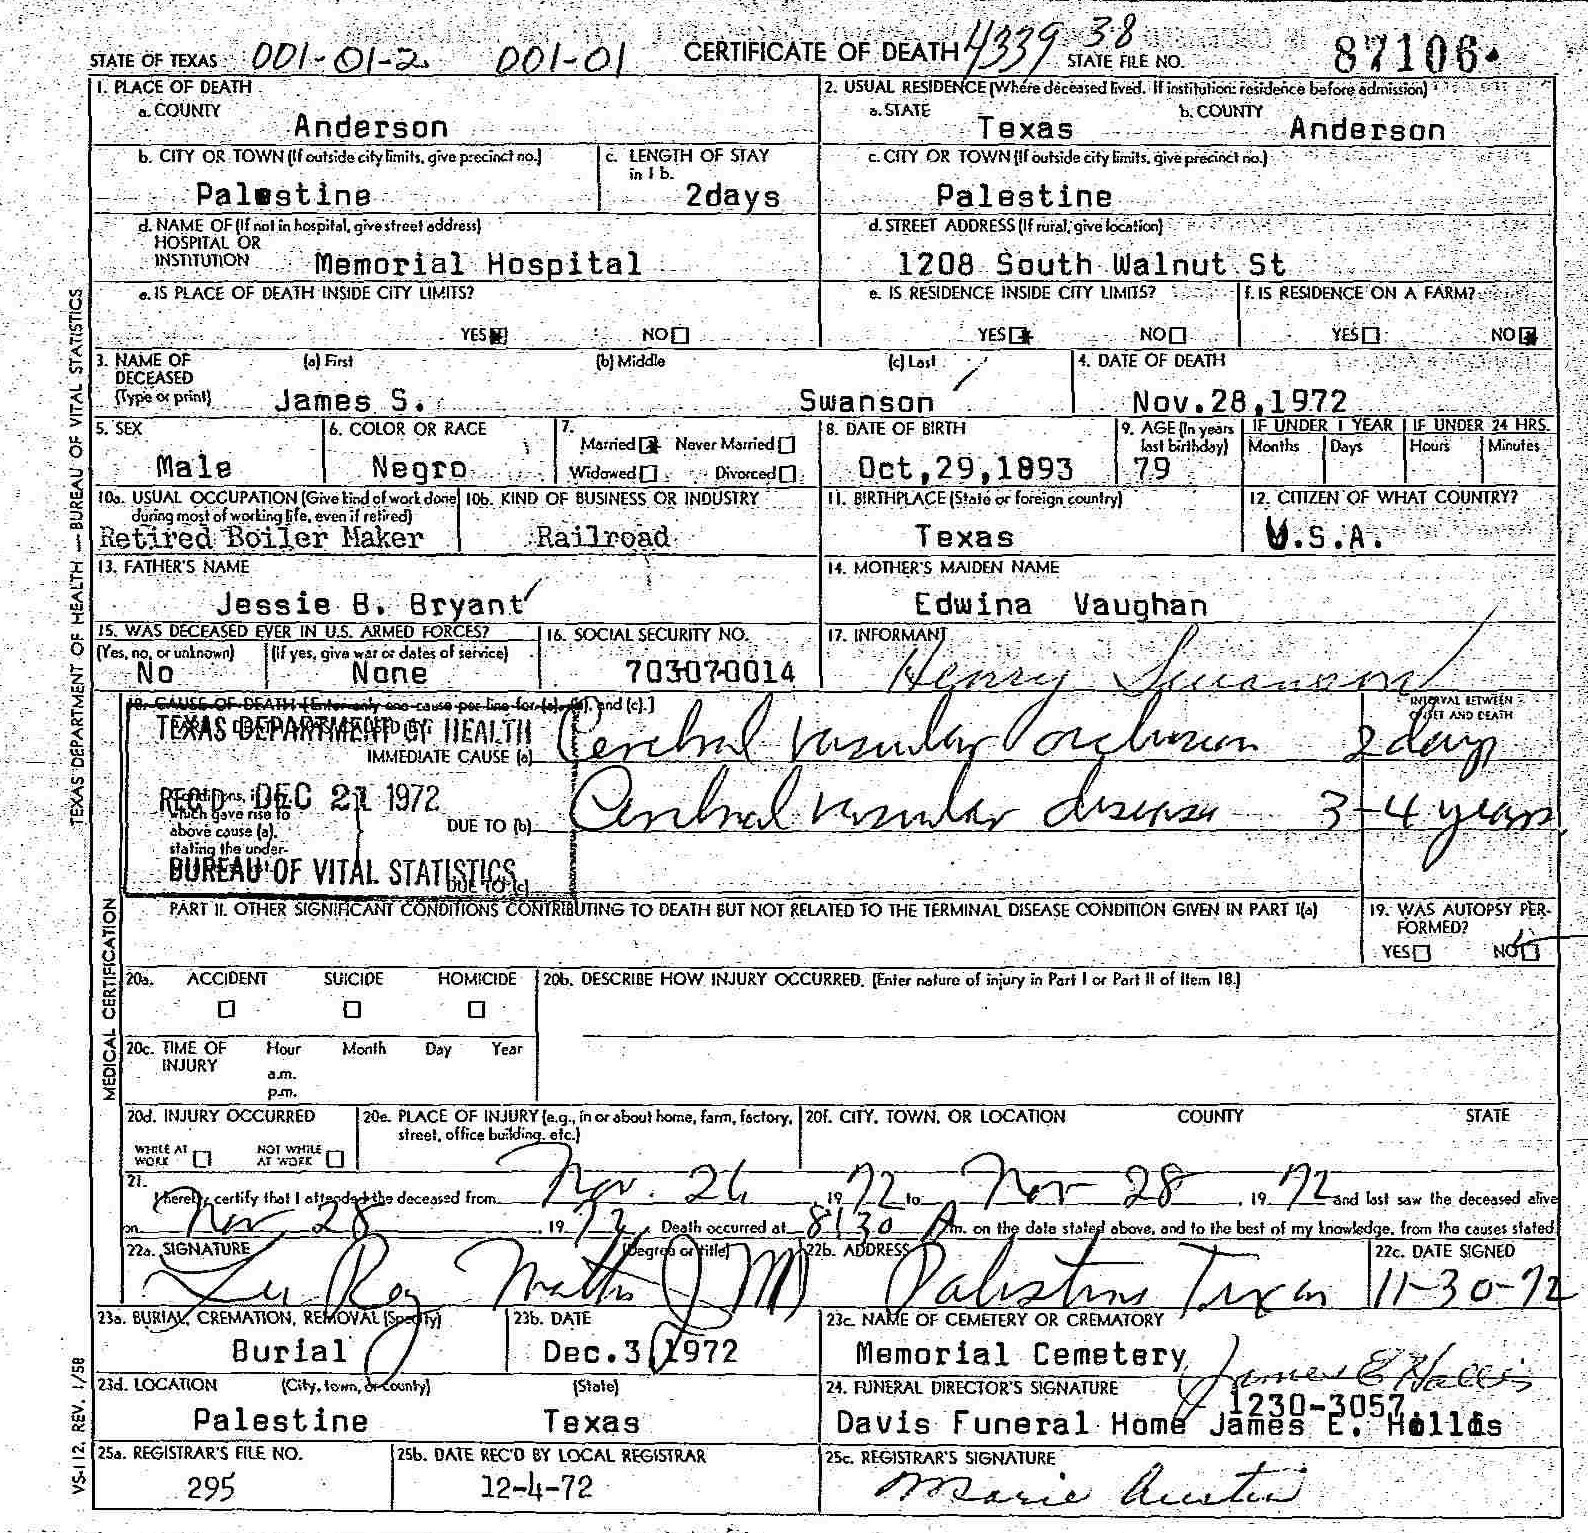 STATE OF TEXAS 001-01-2 001-01 CERTIFICATE OF DEATH 4339 38 STATE FILE NO. 87106
1. PLACE OF DEATH
a. COUNTY
Anderson
2. USUAL RESIDENCE (Where deceased lived. If institution: residence before admission)
a. STATE b. COUNTY
Texas Anderson
b. CITY OR TOWN (If outside city limits, give precinct no.)
Palestine
c. LENGTH OF STAY
in 1 b.
2days
c. CITY OR TOWN (If outside city limits, give precinct no.)
Palestine
d. NAME OF (If not in hospital, give street address)
HOSPITAL OR
INSTITUTION Memorial Hospital
d. STREET ADDRESS (If rural, give location)
1208 South Walnut St
e. IS PLACE OF DEATH INSIDE CITY LIMITS?
YES NO
e. IS RESIDENCE INSIDE CITY LIMITS?
YES NO
f. IS RESIDENCE ON A FARM?
YES NO
3. NAME OF
DECEASED
(Type or print)
(a) First (b) Middle (c) Last
James S. Swanson
4. DATE OF DEATH
Nov.28,1972
5. SEX
Male
6. COLOR OR RACE
Negro
7.
Married Never Married
Widowed Divorced
8. DATE OF BIRTH
Oct,29,1893
9. AGE (In years
last birthday)
79
IF UNDER 1 YEAR IF UNDER 24 HRS.
Months Days Hours Minutes
10a. USUAL OCCUPATION (Give kind of work done
during most of working life, even if retired)
Retired Boiler Maker
10b. KIND OF BUSINESS OR INDUSTRY
Railroad
11. BIRTHPLACE (State or foreign country)
Texas
12. CITIZEN OF WHAT COUNTRY?
U.S.A.
13. FATHER'S NAME
Jessie B. Bryant
14. MOTHER'S MAIDEN NAME
Edwina Vaughan
15. WAS DECEASED EVER IN U.S. ARMED FORCES?
(Yes, no, or unknown) (If yes, give war or dates of service)
No None
16. SOCIAL SECURITY NO.
703-07-0014
17. INFORMANT
Henry Swanson
18. CAUSE OF DEATH [Enter only one cause per line for (a), (b), and (c).]
INTERVAL BETWEEN
ONSET AND DEATH
TEXAS DEPARTMENT OF HEALTH
IMMEDIATE CAUSE (a) Cerebral vascular occlusion 2 days
REC'D DEC 21 1972
Conditions, if any,
which gave rise to
above cause (a),
stating the under-
DUE TO (b) Cerebral vascular disease 3-4 years
BUREAU OF VITAL STATISTICS
DUE TO (c)
PART II. OTHER SIGNIFICANT CONDITIONS CONTRIBUTING TO DEATH BUT NOT RELATED TO THE TERMINAL DISEASE CONDITION GIVEN IN PART I(a)
19. WAS AUTOPSY PER-
FORMED?
YES NO
20a. ACCIDENT SUICIDE HOMICIDE
20b. DESCRIBE HOW INJURY OCCURRED. (Enter nature of injury in Part I or Part II of Item 18.)
20c. TIME OF
INJURY
Hour Month Day Year
a.m.
p.m.
20d. INJURY OCCURRED
WHILE AT
WORK
NOT WHILE
AT WORK
20e. PLACE OF INJURY (e.g., in or about home, farm, factory,
street, office building, etc.)
20f. CITY, TOWN, OR LOCATION COUNTY STATE
21.
I hereby certify that I attended the deceased from Nov. 26, 1972 to Nov 28, 1972 and last saw the deceased alive
on Nov 28, 1972. Death occurred at 8:30 A.m. on the date stated above, and to the best of my knowledge, from the causes stated
22a. SIGNATURE (Degree or title)
22b. ADDRESS
Palestine Texas
22c. DATE SIGNED
11-30-72
23a. BURIAL, CREMATION, REMOVAL (Specify)
Burial
23b. DATE
Dec.3,1972
23c. NAME OF CEMETERY OR CREMATORY
Memorial Cemetery
23d. LOCATION (City, town, or county) (State)
Palestine Texas
24. FUNERAL DIRECTOR'S SIGNATURE
James E Hollis
1230-3057
Davis Funeral Home James E. Hollis
25a. REGISTRAR'S FILE NO.
295
25b. DATE REC'D BY LOCAL REGISTRAR
12-4-72
25c. REGISTRAR'S SIGNATURE
Marie Austin
TEXAS DEPARTMENT OF HEALTH — BUREAU OF VITAL STATISTICS
MEDICAL CERTIFICATION
VS-112, REV. 1/58